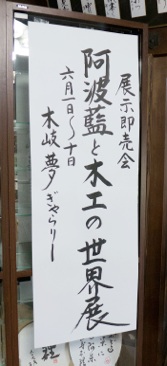 展示即売会
阿波藍と木工の世界展
六月一日〜十日
木岐 夢ぎゃらりー